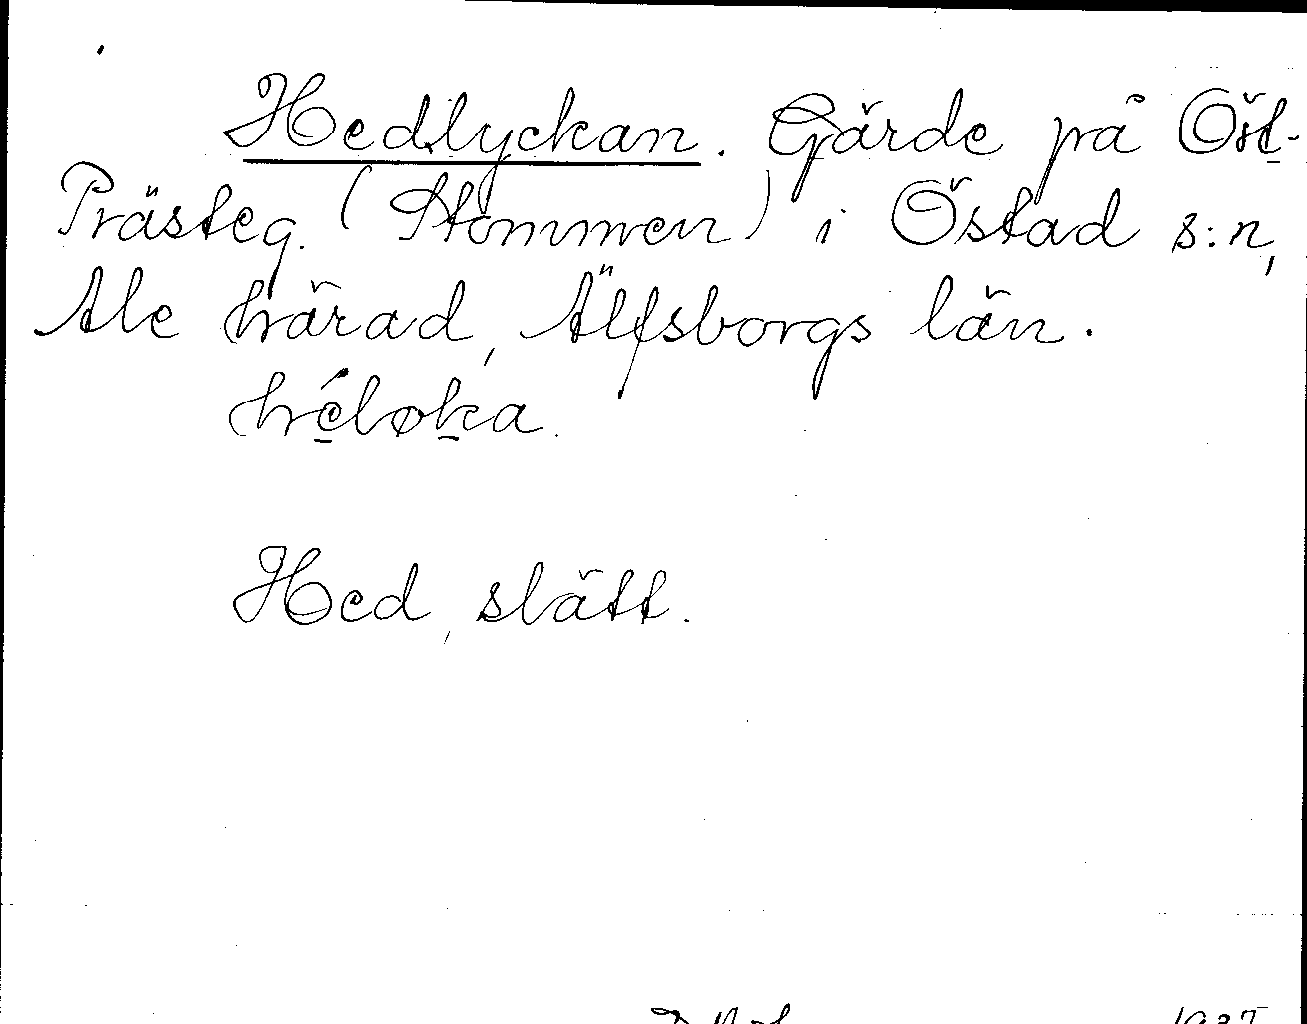 Hedlyckan. Gärde på Öst-
Prästeg. (Stommen) i Östad s:n,
Ale härad, Älfsborgs län.
héløka.
Hed, slätt.